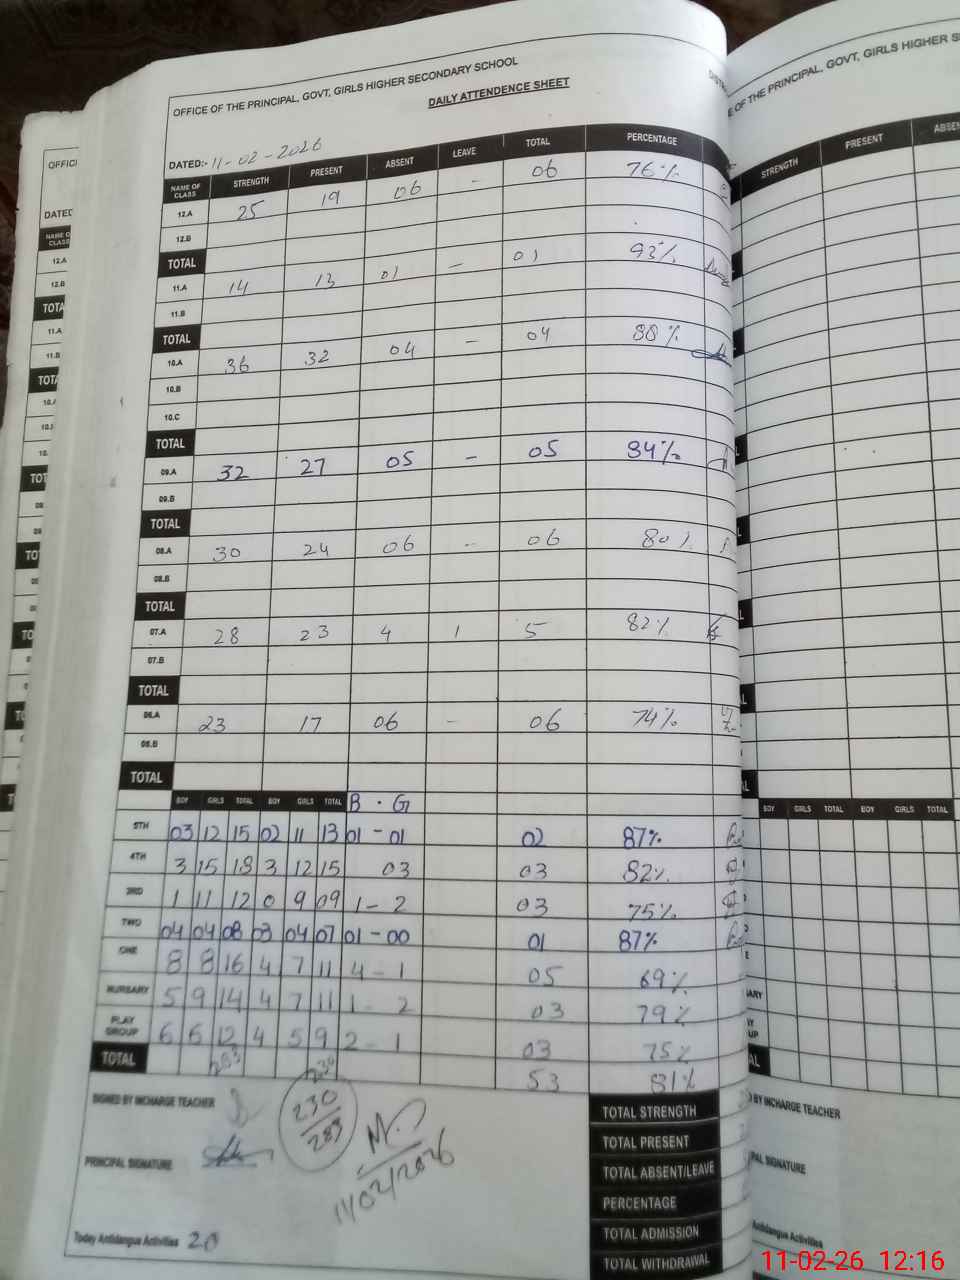 OFFICE OF THE PRINCIPAL, GOVT, GIRLS HIGHER SECONDARY SCHOOL
DAILY ATTENDENCE SHEET
DATED:- 11-02-2026
NAME OF CLASS STRENGTH PRESENT ABSENT LEAVE TOTAL PERCENTAGE
12.A 25 19 06 - 06 76%
12.B
TOTAL
11.A 14 13 01 - 01 93%
11.B
TOTAL
10.A 36 32 04 - 04 88%
10.B
10.C
TOTAL
09.A 32 27 05 - 05 84%
09.B
TOTAL
08.A 30 24 06 - 06 80%
08.B
TOTAL
07.A 28 23 4 1 5 82%
07.B
TOTAL
06.A 23 17 06 - 06 74%
06.B
TOTAL
BOY GIRLS TOTAL BOY GIRLS TOTAL B . G
5TH 03 12 15 02 11 13 01 - 01 02 87%
4TH 3 15 18 3 12 15 03 03 82%
3RD 1 11 12 0 9 09 1 - 2 03 75%
TWO 04 04 08 03 04 07 01 - 00 01 87%
ONE 8 8 16 4 7 11 4 - 1 05 69%
NURSARY 5 9 14 4 7 11 1 - 2 03 79%
PLAY GROUP 6 6 12 4 5 9 2 - 1 03 75%
TOTAL 283 230 53 81%
SIGNED BY INCHARGE TEACHER
230
283
PRINCIPAL SIGNATURE
11/02/2026
TOTAL STRENGTH
TOTAL PRESENT
TOTAL ABSENT/LEAVE
PERCENTAGE
TOTAL ADMISSION
TOTAL WITHDRAWAL
Today Antidangua Activities 20
OFFICE
DATED
NAME OF CLASS
12.A
12.B
11.A
11.B
E OF THE PRINCIPAL, GOVT, GIRLS HIGHER
STRENGTH PRESENT ABSEN
BOY GIRLS TOTAL BOY GIRLS TOTAL
D BY INCHARGE TEACHER
PAL SIGNATURE
Antidangua Activities
11-02-26 12:16